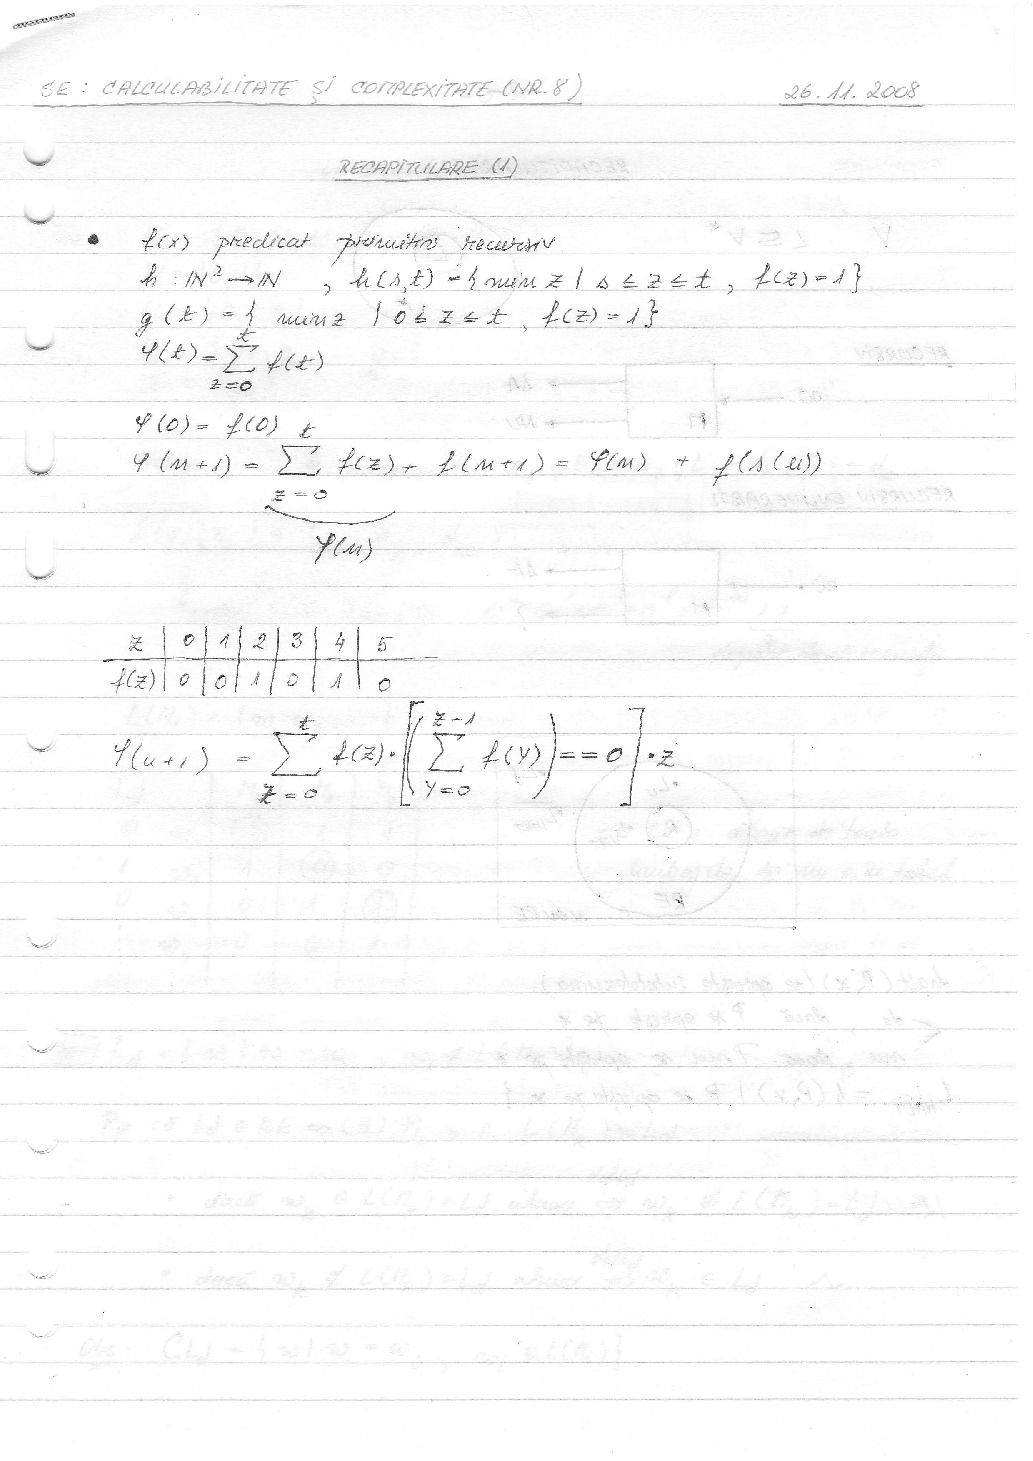 SE : CALCULABILITATE ŞI COMPLEXITATE (NR. 8) 26.11.2008
RECAPITULARE (1)
• f(x) predicat primitiv recursiv
h : IN² → IN , h(s,t) = { min z | s ≤ z ≤ t , f(z) = 1 }
g(t) = { min z | 0 ≤ z ≤ t , f(z) = 1 }
φ(t) = ∑_{z=0}^{t} f(t)
φ(0) = f(0)
φ(n+1) = ∑_{z=0}^{t} f(z) + f(n+1) = φ(n) + f(s(n))
φ(n)
z | 0 | 1 | 2 | 3 | 4 | 5
f(z) | 0 | 0 | 1 | 0 | 1 | 0
φ(n+1) = ∑_{z=0}^{t} f(z) · [ ( ∑_{y=0}^{z-1} f(y) ) == 0 ] · z